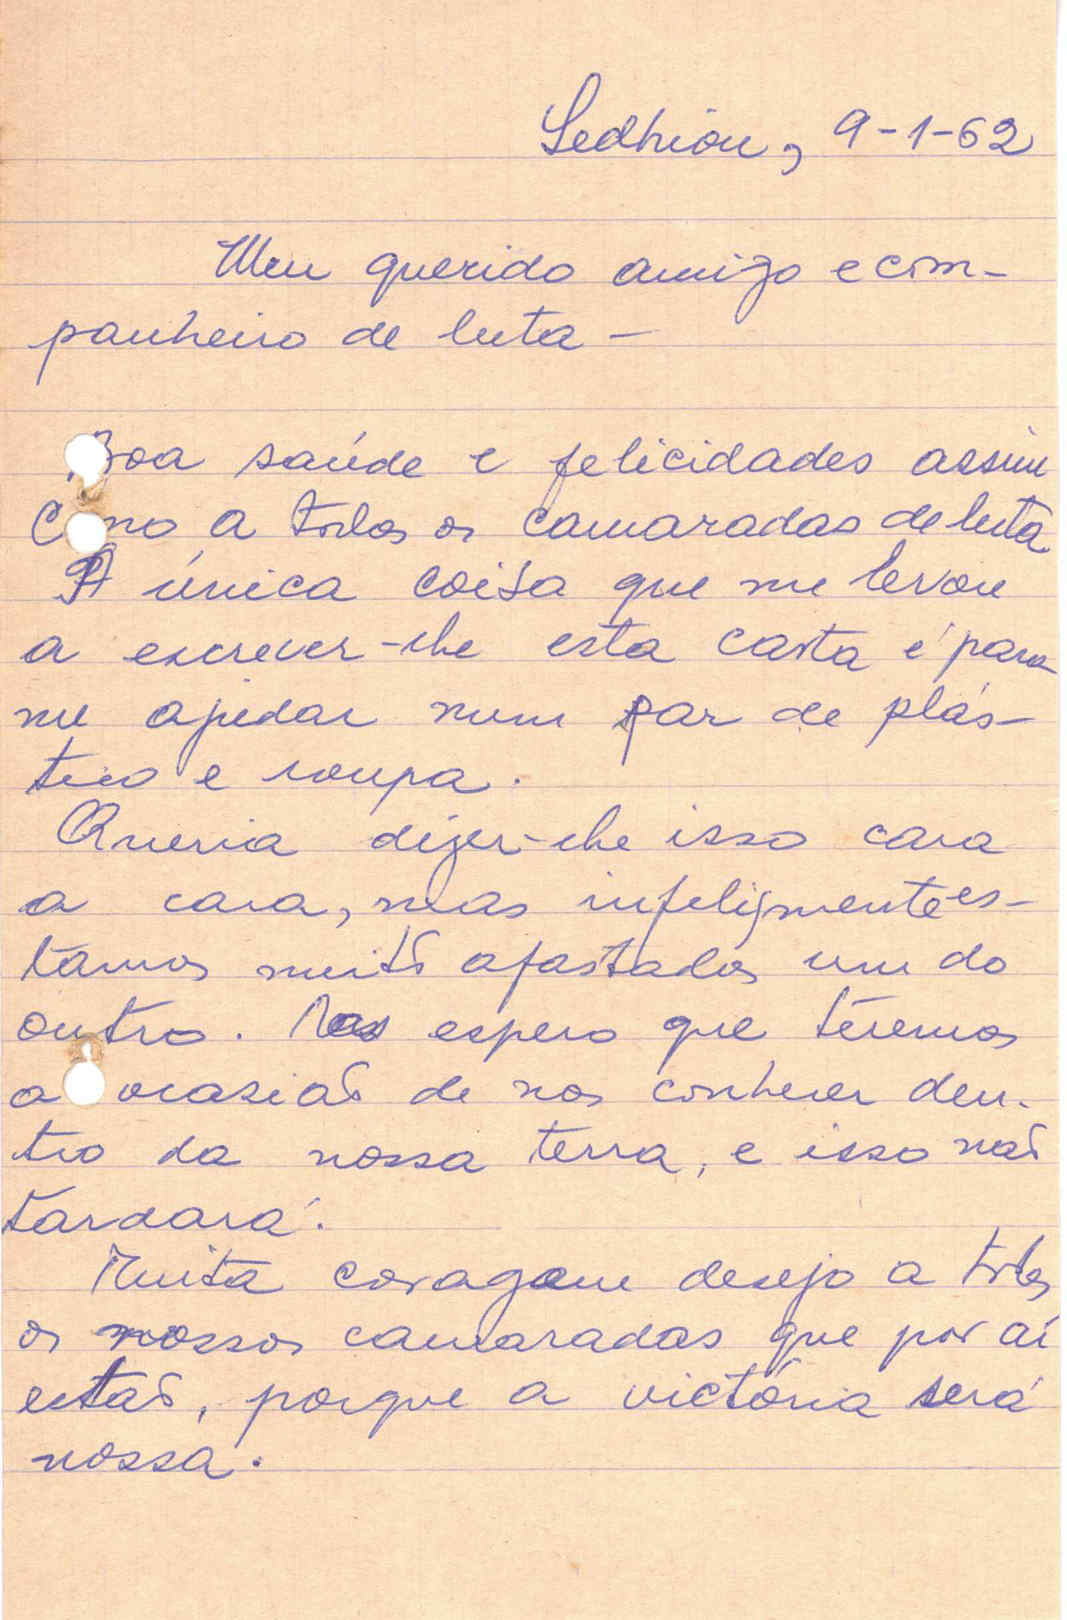 Sedhiou, 9-1-62
Meu querido amigo e com-
panheiro de luta -
Boa saúde e felicidades assim
Como a todos os camaradas de luta
A única coisa que me levou
a escrever-lhe esta carta é para
me ajudar num par de plás-
tico e roupa.
Queria dizer-lhe isso cara
a cara, mas infelizmente es-
tamos muito afastados um do
outro. Mas espero que teremos
a ocasião de nos conhecer den-
tro da nossa terra, e isso não
tardará.
Muita coragem desejo a todos
os nossos camaradas que por aí
estão, porque a victória será
nossa.